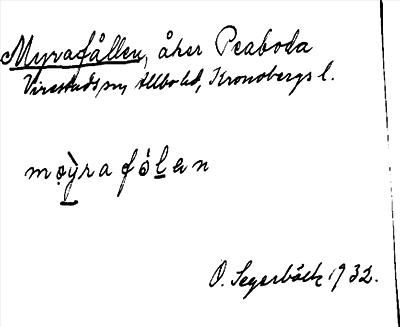 Myrafållen, åker Peaboda
Virestads sn, Allbo hd, Kronobergs l.
mo̤ỳrafólen
O. Segerbäck 1932.